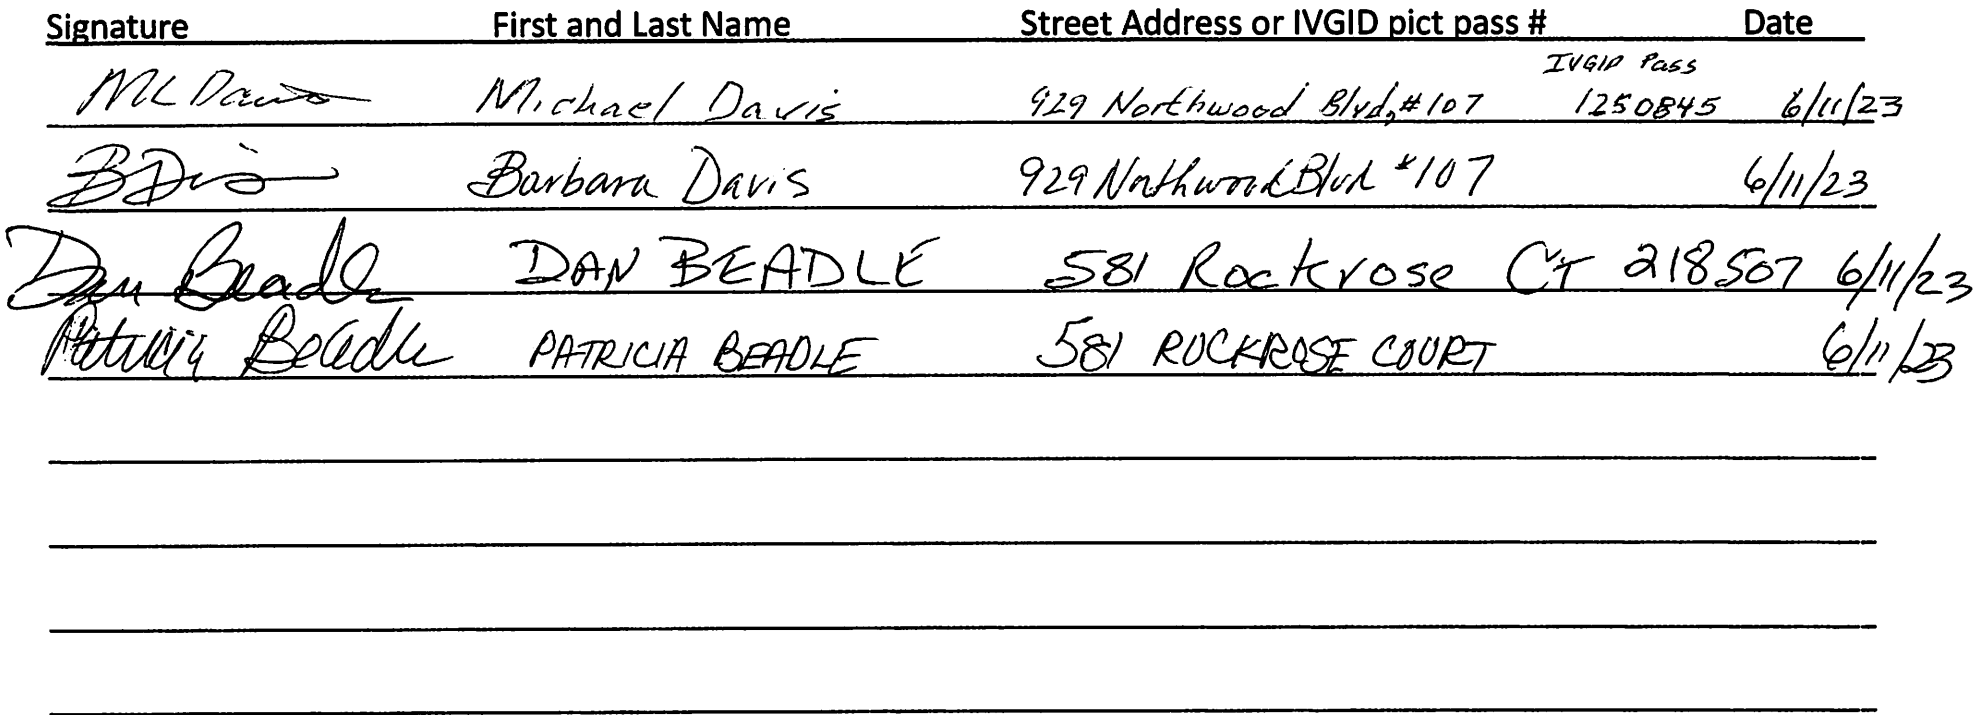 Signature First and Last Name Street Address or IVGID pict pass # Date
IVGID Pass
ML Davis Michael Davis 929 Northwood Blvd, #107 1250845 6/11/23
BDavis Barbara Davis 929 Northwood Blvd #107 6/11/23
Dan Beadle DAN BEADLE 581 Rockrose CT 218507 6/11/23
Patricia Beadle PATRICIA BEADLE 581 ROCKROSE COURT 6/11/23